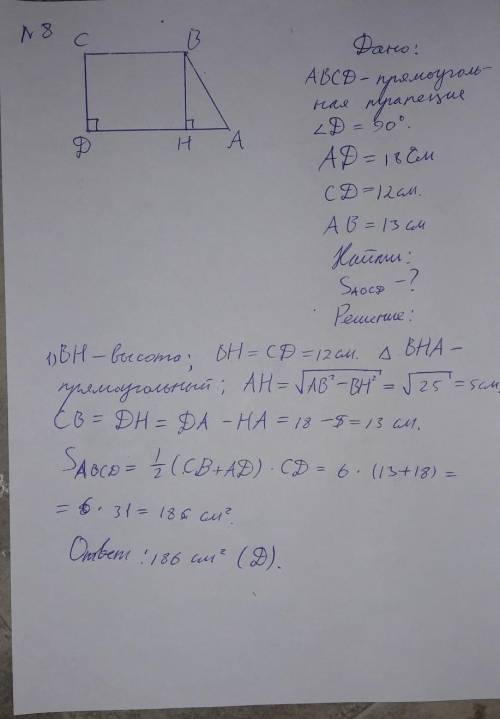 №8
C B
D H A
Дано:
ABCD – прямоуголь-
ная трапеция
∠D = 90°.
AD = 18 см
CD = 12 см.
AB = 13 см
Найти:
S_ABCD – ?
Решение:
1) BH – высота; BH = CD = 12 см. △ BHA –
прямоугольный; AH = √(AB² – BH²) = √25 = 5 см,
CB = DH = DA – HA = 18 – 5 = 13 см.
S_ABCD = 1/2 (CB + AD) · CD = 6 · (13 + 18) =
= 6 · 31 = 186 см².
Ответ: 186 см² (D).